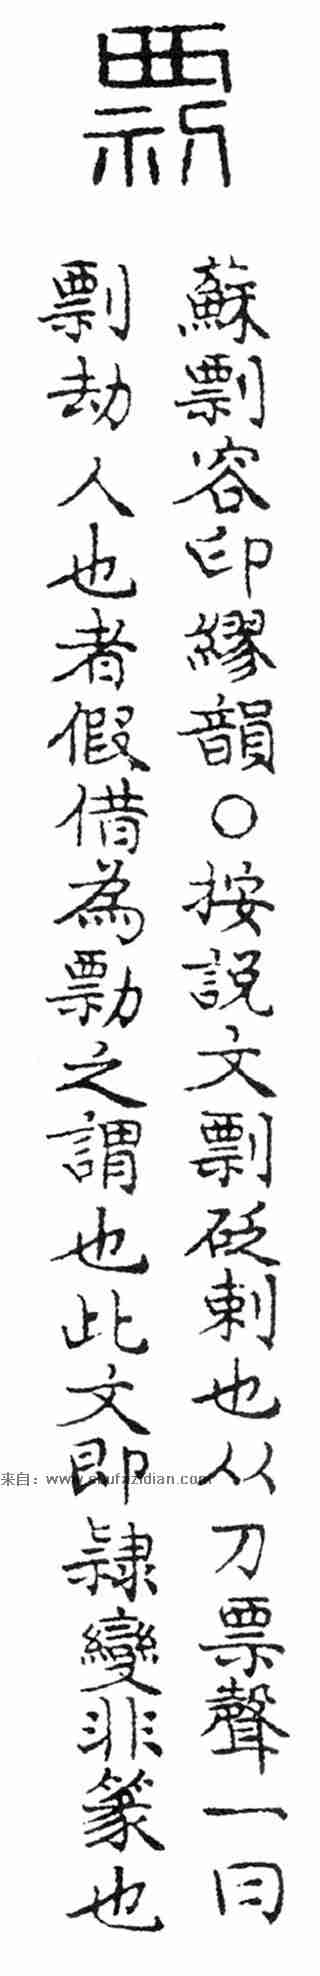 剽
蘇剽容印繆韻○按說文剽砭刺也从刀票聲一曰
剽劫人也者假借為勡之謂也此文即隷變非篆也
来自：www.shufazidian.com